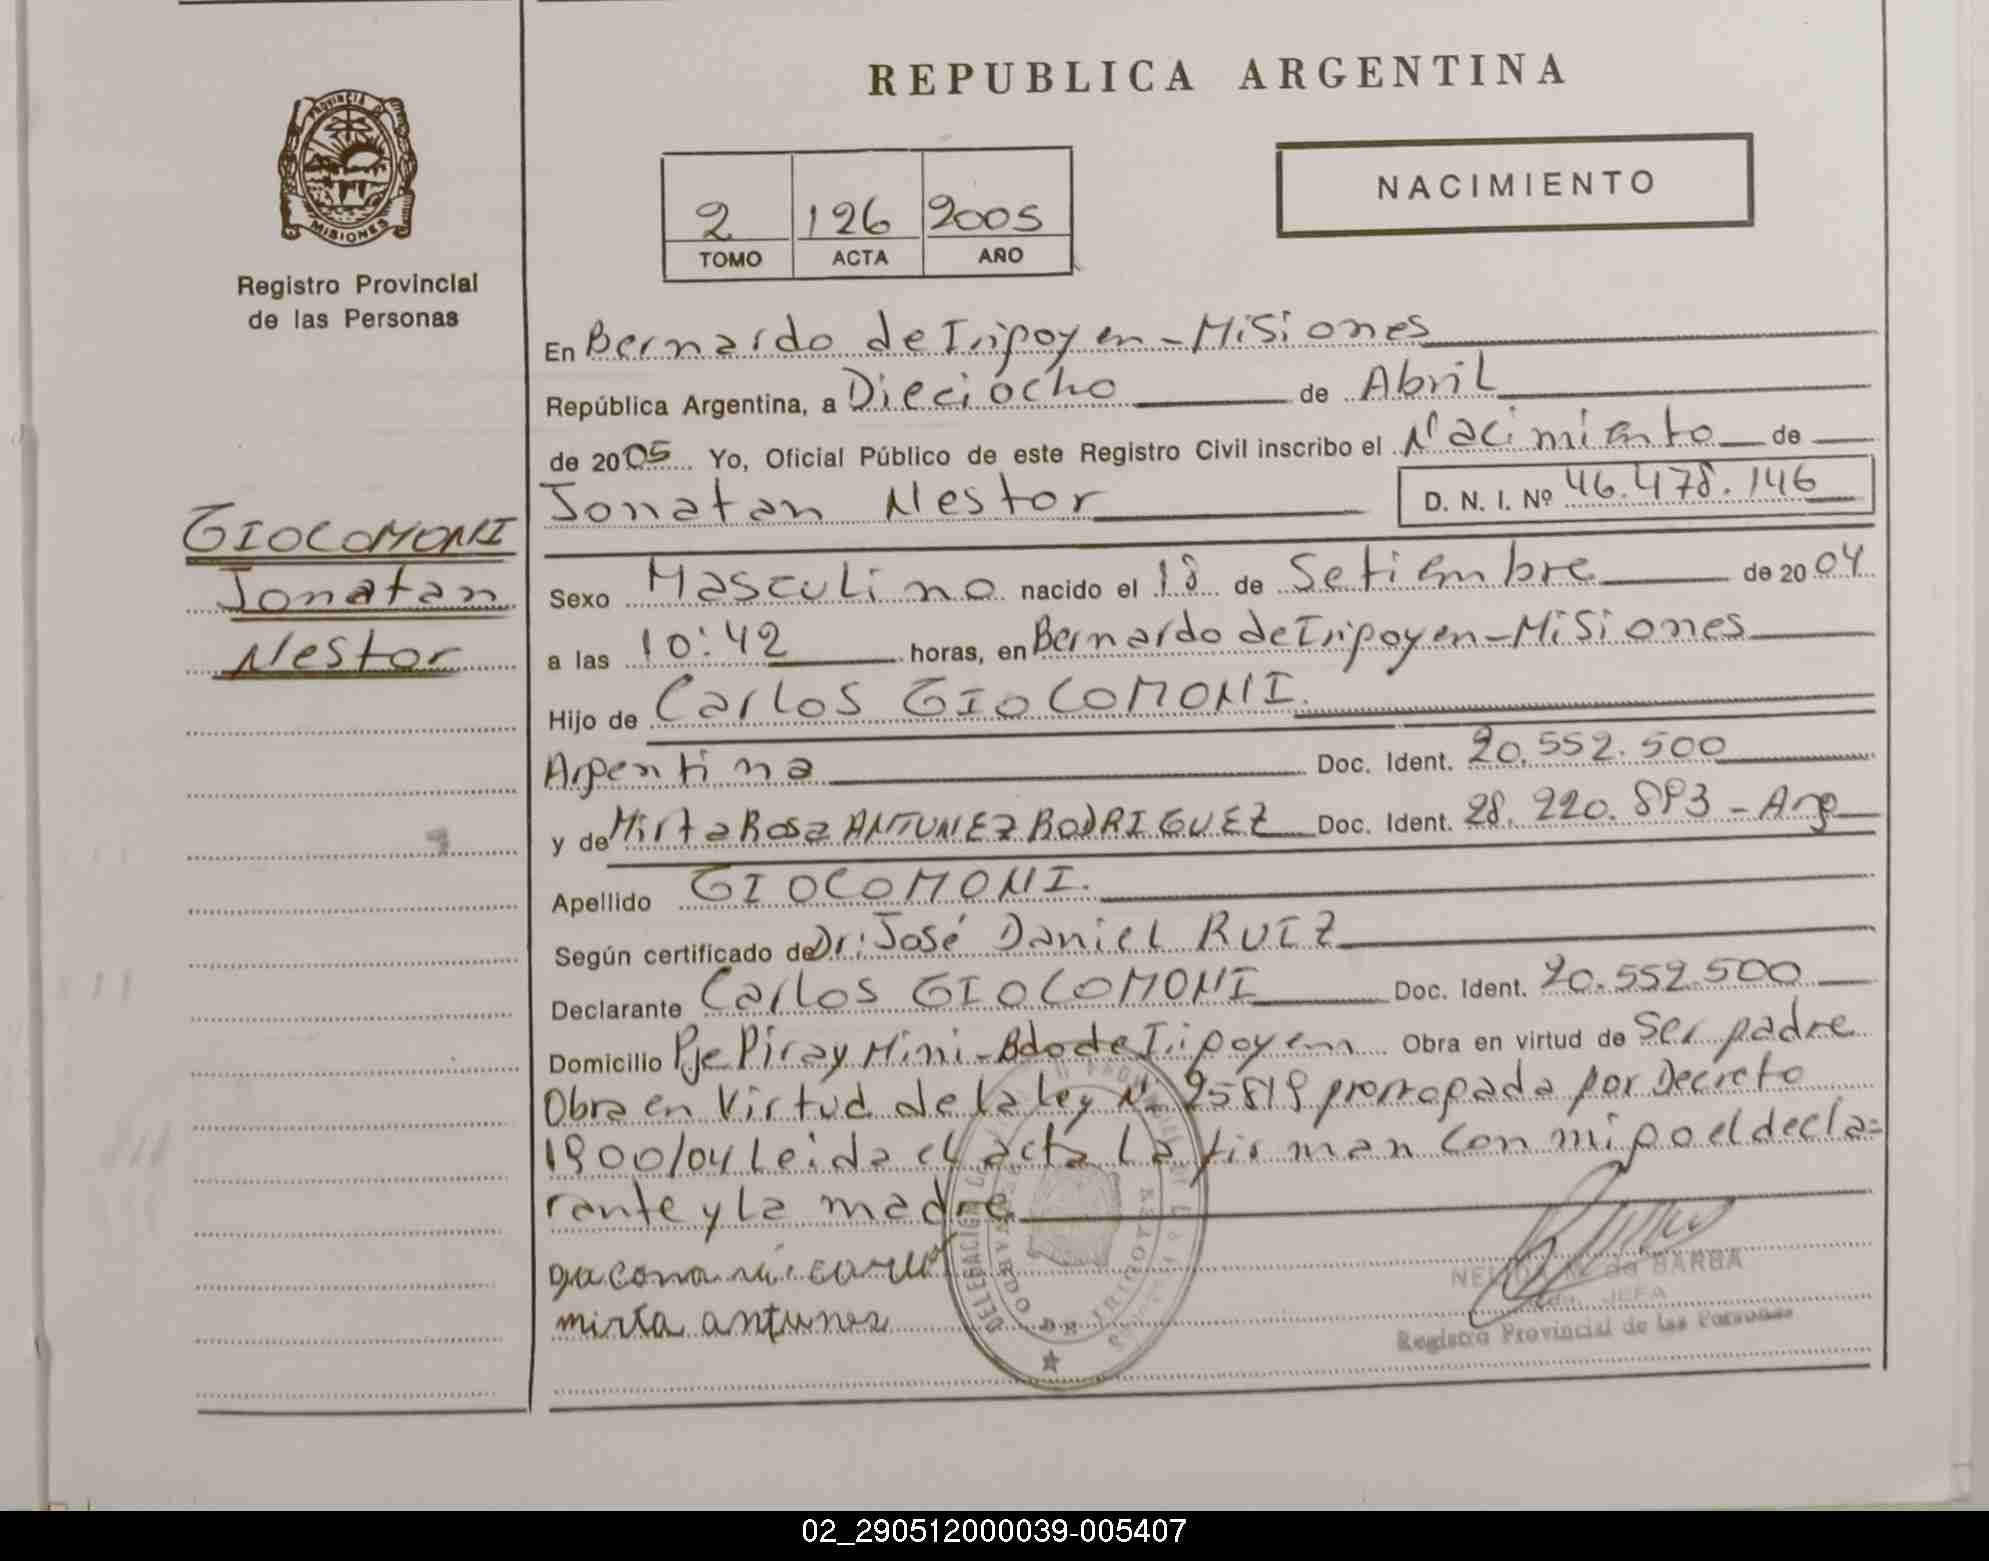 REPUBLICA ARGENTINA
PROVINCIA DE
MISIONES
Registro Provincial
de las Personas
2 126 2005
TOMO ACTA AÑO
NACIMIENTO
GIOCOMONI
Jonatan
Nestor
En Bernardo de Irigoyen - Misiones
República Argentina, a Dieciocho de Abril
de 2005 Yo, Oficial Público de este Registro Civil inscribo el Nacimiento de
Jonatan Nestor D. N. I. Nº 46.478.146
Sexo Masculino nacido el 18 de Setiembre de 2004
a las 10:42 horas, en Bernardo de Irigoyen - Misiones
Hijo de Carlos GIOCOMONI.
Argentina Doc. Ident. 20.552.500
y de Mirta Rosa ANTUNEZ RODRIGUEZ Doc. Ident. 28.220.893 - Arg
Apellido GIOCOMONI.
Según certificado de Dr: José Daniel RUIZ
Declarante Carlos GIOCOMONI Doc. Ident. 20.552.500
Domicilio Pje Piray Mini - Bdo de Irigoyen Obra en virtud de Ser padre
Obra en Virtud de la Ley Nº 25819 prorrogada por Decreto
1900/04 Leida el acta la firman conmigo el decla=
rante y la madre
mirta antunez
DELEGACION
BERNARDO DE IRIGOYEN
de BARBA
JEFA
Registro Provincial de las Personas
02_290512000039-005407